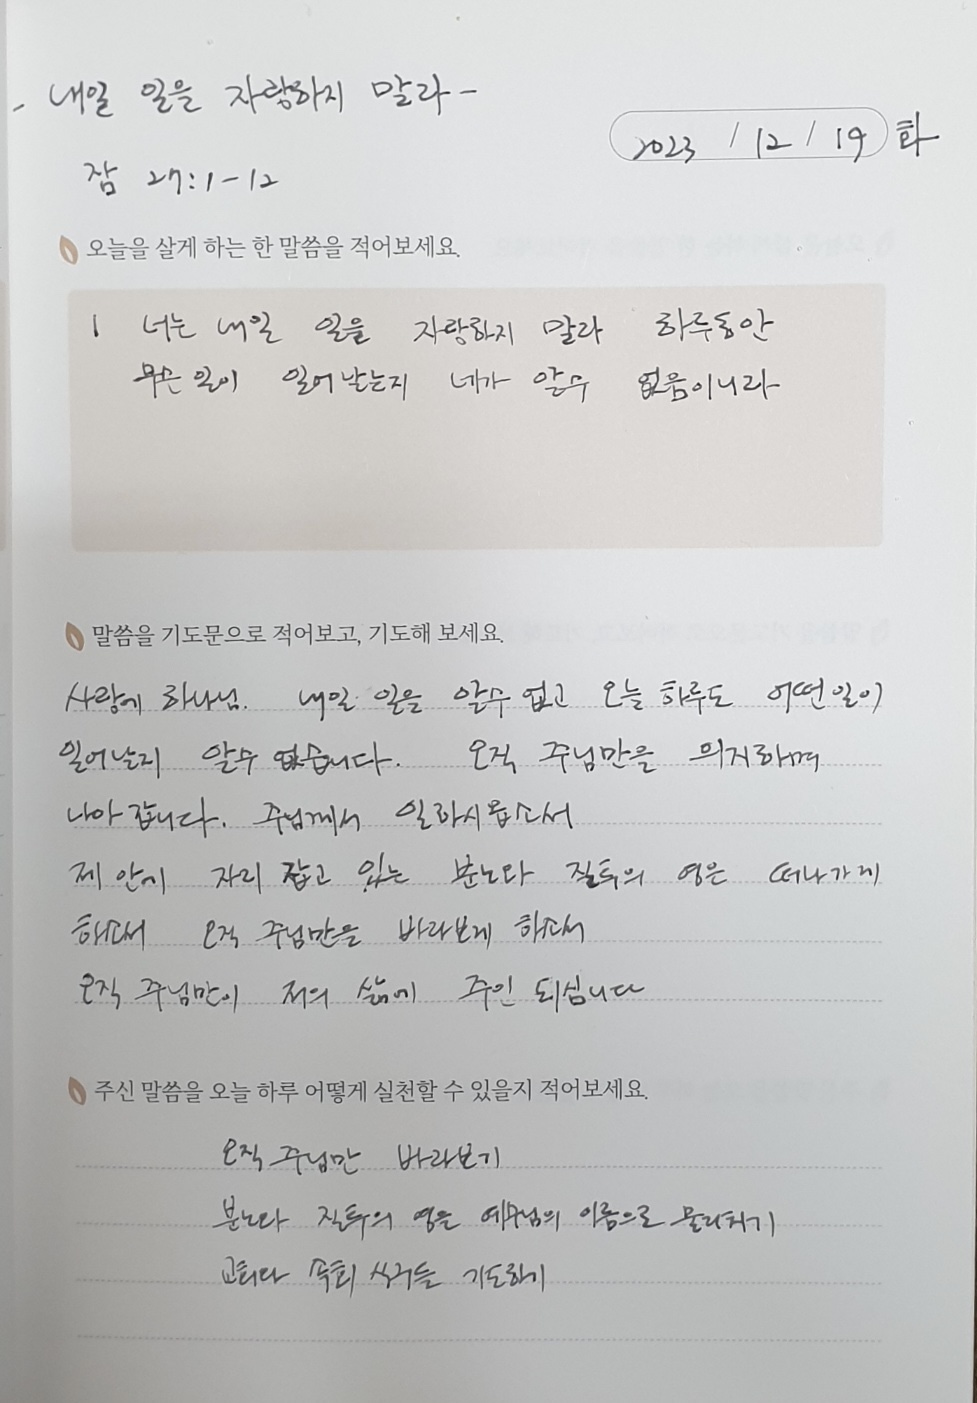 - 내일 일을 자랑하지 말라 -
2023 / 12 / 19 화
잠 27:1-12
오늘을 살게 하는 한 말씀을 적어보세요.
1 너는 내일 일을 자랑하지 말라 하루동안
무슨 일이 일어날는지 네가 알수 없음이니라
말씀을 기도문으로 적어보고, 기도해 보세요.
사랑에 하나님. 내일 일을 알수 없고 오늘 하루도 어떤일이
일어날지 알수 없습니다. 오직 주님만을 의지하며
나아갑니다. 주님께서 일하시옵소서
제 안에 자리 잡고 있는 분노와 질투의 영은 떠나가게
하소서 오직 주님만을 바라보게 하소서
오직 주님만이 저의 삶에 주인 되십니다
주신 말씀을 오늘 하루 어떻게 실천할 수 있을지 적어보세요.
오직 주님만 바라보기
분노와 질투의 영을 예수님의 이름으로 물리치기
교회와 속회 식구들 기도하기